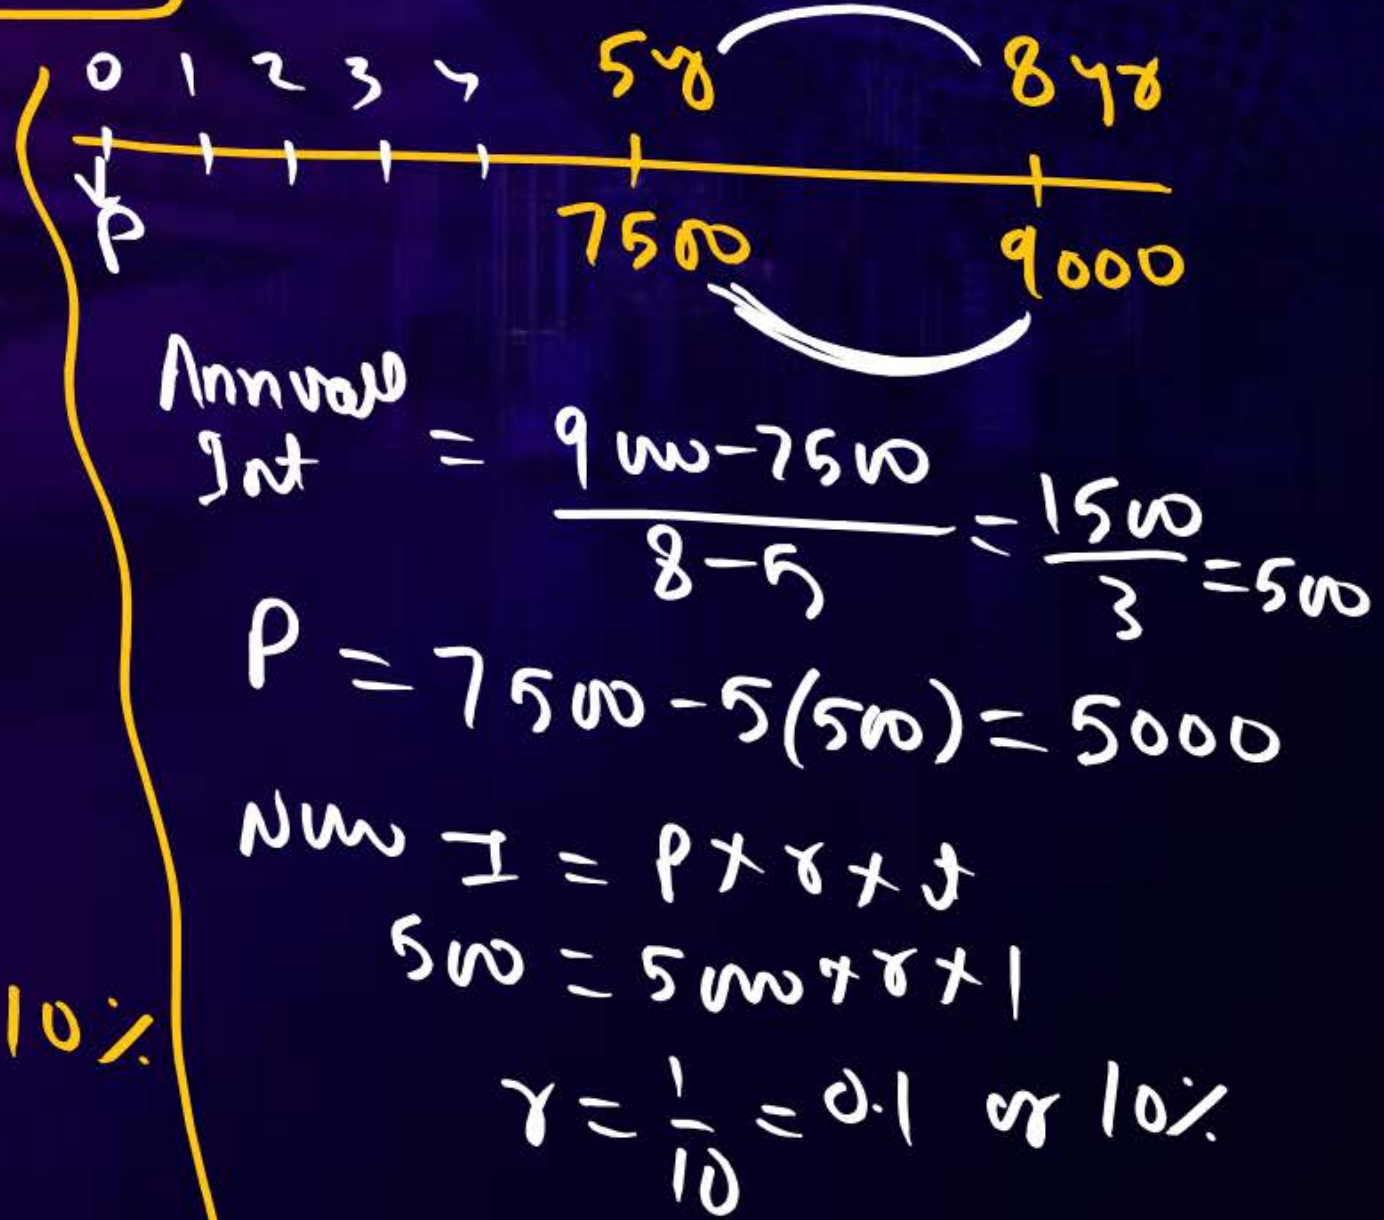 0 1 2 3 4 5y 8 yr
P 7500 9000
Annual
Int = 9000-7500 / 8-5 = 1500 / 3 = 500
P = 7500 - 5(500) = 5000
Now I = P × r × t
500 = 5000 × r × 1
10%
r = 1/10 = 0.1 or 10%